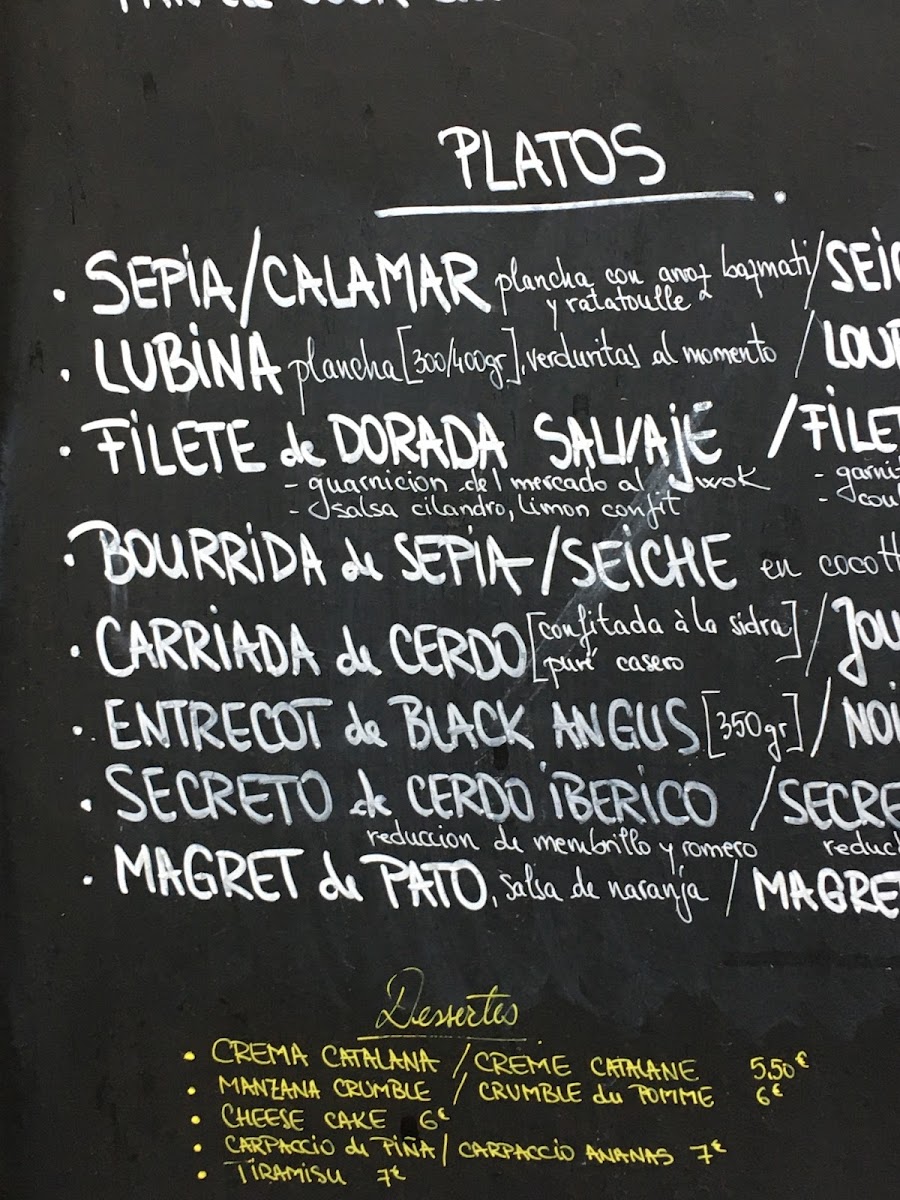 PLATOS
• SEPIA/CALAMAR plancha con arroz bazmati/SEIC
y ratatoulle
• LUBINA plancha [300/400gr], verduritas al momento / LOUP
• FILETE de DORADA SALVAJE / FILET
- guarnicion del mercado al wok - garni
- salsa cilandro, limon confit - cou
• BOURRIDA de SEPIA/SEICHE en cocott
• CARRIADA de CERDO [confitada à la sidra] / JOU
puré casero
• ENTRECOT de BLACK ANGUS [350gr] / NOI
• SECRETO de CERDO iBERICO / SECRE
reduccion de membrillo y romero reduc
• MAGRET de PATO, salsa de naranja / MAGRE
Dessertes
• CREMA CATALANA / CREME CATALANE 5,50€
• MANZANA CRUMBLE / CRUMBLE du POMME 6€
• CHEESE CAKE 6€
• CARPACCIO de PIÑA / CARPACCIO ANANAS 7€
• TIRAMISU 7€